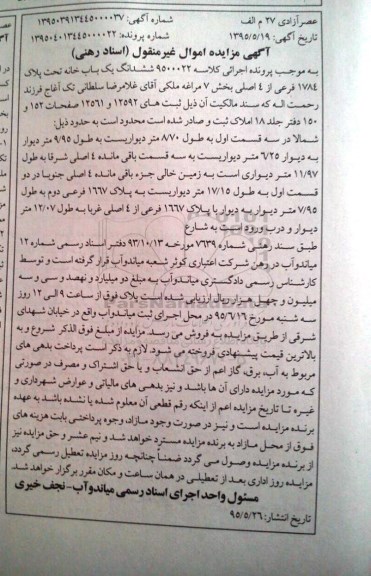 عصرآزادی ۲۷ م الف
شماره آگهی: ۱۳۹۵۰۳۹۱۳۴۴۵۰۰۰۰۳۷
تاریخ آگهی: ۱۳۹۵/۵/۱۹
شماره پرونده: ۱۳۹۵۰۴۰۱۳۴۴۵۰۰۰۰۲۲
آگهی مزایده اموال غیرمنقول (اسناد رهنی)
به موجب پرونده اجرائی کلاسه ۹۵۰۰۰۲۲ ششدانگ یک باب خانه تحت پلاک
۱۷۸۴ فرعی از ۴ اصلی بخش ۷ مراغه ملکی آقای غلامرضا سلطانی تک آغاج فرزند
رحمت اله که سند مالکیت آن ذیل ثبت های ۱۲۵۹۲ و ۱۲۵۶۱ صفحات ۱۵۲ و
۱۵۰ دفتر جلد ۱۸ املاک ثبت و صادر شده است محدود است به حدود ذیل:
شمالا در سه قسمت اول به طول ۸/۷۰ متر دیواریست به طول ۹/۹۵ متر دیوار
به دیوار ۶/۲۵ متر دیواریست به سه قسمت باقی مانده ۴ اصلی شرقا به طول
۱۱/۹۷ متر دیواری است به زمین خالی جزء باقی مانده ۴ اصلی جنوبا در دو
قسمت اول به طول ۱۷/۱۵ متر دیواریست به پلاک ۱۶۶۷ فرعی دوم به طول
۷/۹۵ متر دیوار به دیوار با پلاک ۱۶۶۷ فرعی از ۴ اصلی غربا به طول ۱۲/۰۷ متر
دیوار و درب ورود است به شارع
طبق سند رهنی شماره ۷۶۳۹ مورخه ۹۳/۱۰/۱۳ دفتر اسناد رسمی شماره ۱۲
میاندوآب در رهن شرکت اعتباری کوثر شعبه میاندوآب قرار گرفته است و توسط
کارشناس رسمی دادگستری میاندوآب به مبلغ دو میلیارد و نهصد و سی و سه
میلیون و چهل هزار ریال ارزیابی شده است پلاک فوق از ساعت ۹ الی ۱۲ روز
سه شنبه مورخ ۹۵/۶/۱۶ در محل اجرای ثبت میاندوآب واقع در خیابان شهدای
شرقی از طریق مزایده به فروش می رسد. مزایده از مبلغ فوق الذکر شروع و به
بالاترین قیمت پیشنهادی فروخته می شود. لازم به ذکر است پرداخت بدهی های
مربوط به آب، برق، گاز اعم از حق انشعاب و یا حق اشتراک و مصرف در صورتی
که مورد مزایده دارای آن ها باشد و نیز بدهی های مالیاتی و عوارض شهرداری و
غیره تا تاریخ مزایده اعم از اینکه رقم قطعی آن معلوم شده یا نشده باشد به عهده
برنده مزایده است و نیز در صورت وجود مازاد، وجوه پرداختی بابت هزینه های
فوق از محل مازاد به برنده مزایده مسترد خواهد شد و نیم عشر و حق مزایده نیز
از برنده مزایده وصول می گردد ضمناً چنانچه روز مزایده تعطیل رسمی گردد،
مزایده روز اداری بعد از تعطیلی در همان ساعت و مکان مقرر برگزار خواهد شد.
مسئول واحد اجرای اسناد رسمی میاندوآب-نجف خیری
تاریخ انتشار: ۹۵/۵/۲۶